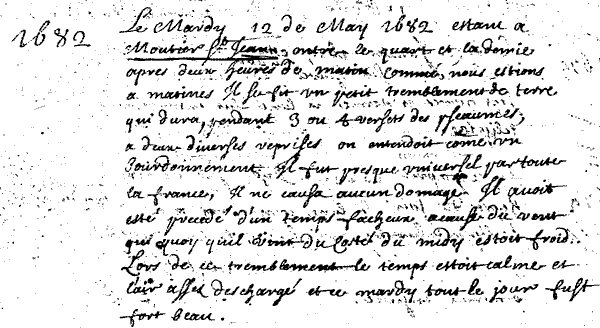 1682
Le Mardy 12 de May 1682 estant a
Moutier St Jean, entre le quart et la demie
apres deux heures de matin comme nous estions
a matines Il se fit un petit tremblement de terre
qui dura, pendant 3 ou 4 versets des pseaumes,
a deux diverses reprises on entendoit come un
Bourdonnement Il fut presque universel par toute
la france, Il ne causa aucun domage Il avoit
esté precedé d'un temps facheux acause du vent
qui quoy quil vint du Costé du midy estoit froid.
Lors de ce tremblement le temps estoit calme et
l'air assés deschargé et ce mardy tout le jour fust
fort beau.